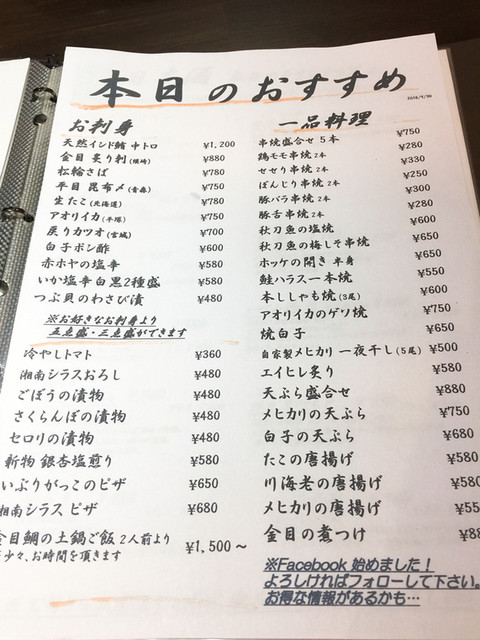 本日のおすすめ
2018/9/30
お刺身
天然インド鮪 中トロ ¥1,200
金目 炙り刺(須崎) ¥880
松輪さば ¥780
平目 昆布〆(青森) ¥750
生たこ(北海道) ¥780
アオリイカ(平塚) ¥750
戻りカツオ(宮城) ¥700
白子ポン酢 ¥600
赤ホヤの塩辛 ¥580
いか塩辛 白黒2種盛 ¥580
つぶ貝のわさび漬 ¥480
※お好きなお刺身より
五点盛・三点盛ができます
冷やしトマト ¥360
湘南シラスおろし ¥480
ごぼうの漬物 ¥480
さくらんぼの漬物 ¥480
セロリの漬物 ¥480
新物 銀杏塩煎り ¥580
いぶりがっこのピザ ¥650
湘南シラス ピザ ¥680
金目鯛の土鍋ご飯 2人前より ¥1,500～
少々、お時間を頂きます
一品料理
串焼盛合せ 5本 ¥750
鶏モモ串焼 2本 ¥280
セセリ串焼 2本 ¥330
ぼんじり串焼 2本 ¥250
豚バラ串焼 2本 ¥300
豚舌串焼 2本 ¥280
秋刀魚の塩焼 ¥600
秋刀魚の梅しそ串焼 ¥650
ホッケの開き 半身 ¥650
鮭ハラス一本焼 ¥550
本ししゃも焼(3尾) ¥600
アオリイカのゲソ焼 ¥750
焼白子 ¥650
自家製メヒカリ 一夜干し(5尾) ¥500
エイヒレ炙り ¥580
天ぷら盛合せ ¥880
メヒカリの天ぷら ¥750
白子の天ぷら ¥680
たこの唐揚げ ¥580
川海老の唐揚げ ¥580
メヒカリの唐揚げ ¥55
金目の煮つけ ¥88
※Facebook 始めました！
よろしければフォローして下さい。
お得な情報があるかも…